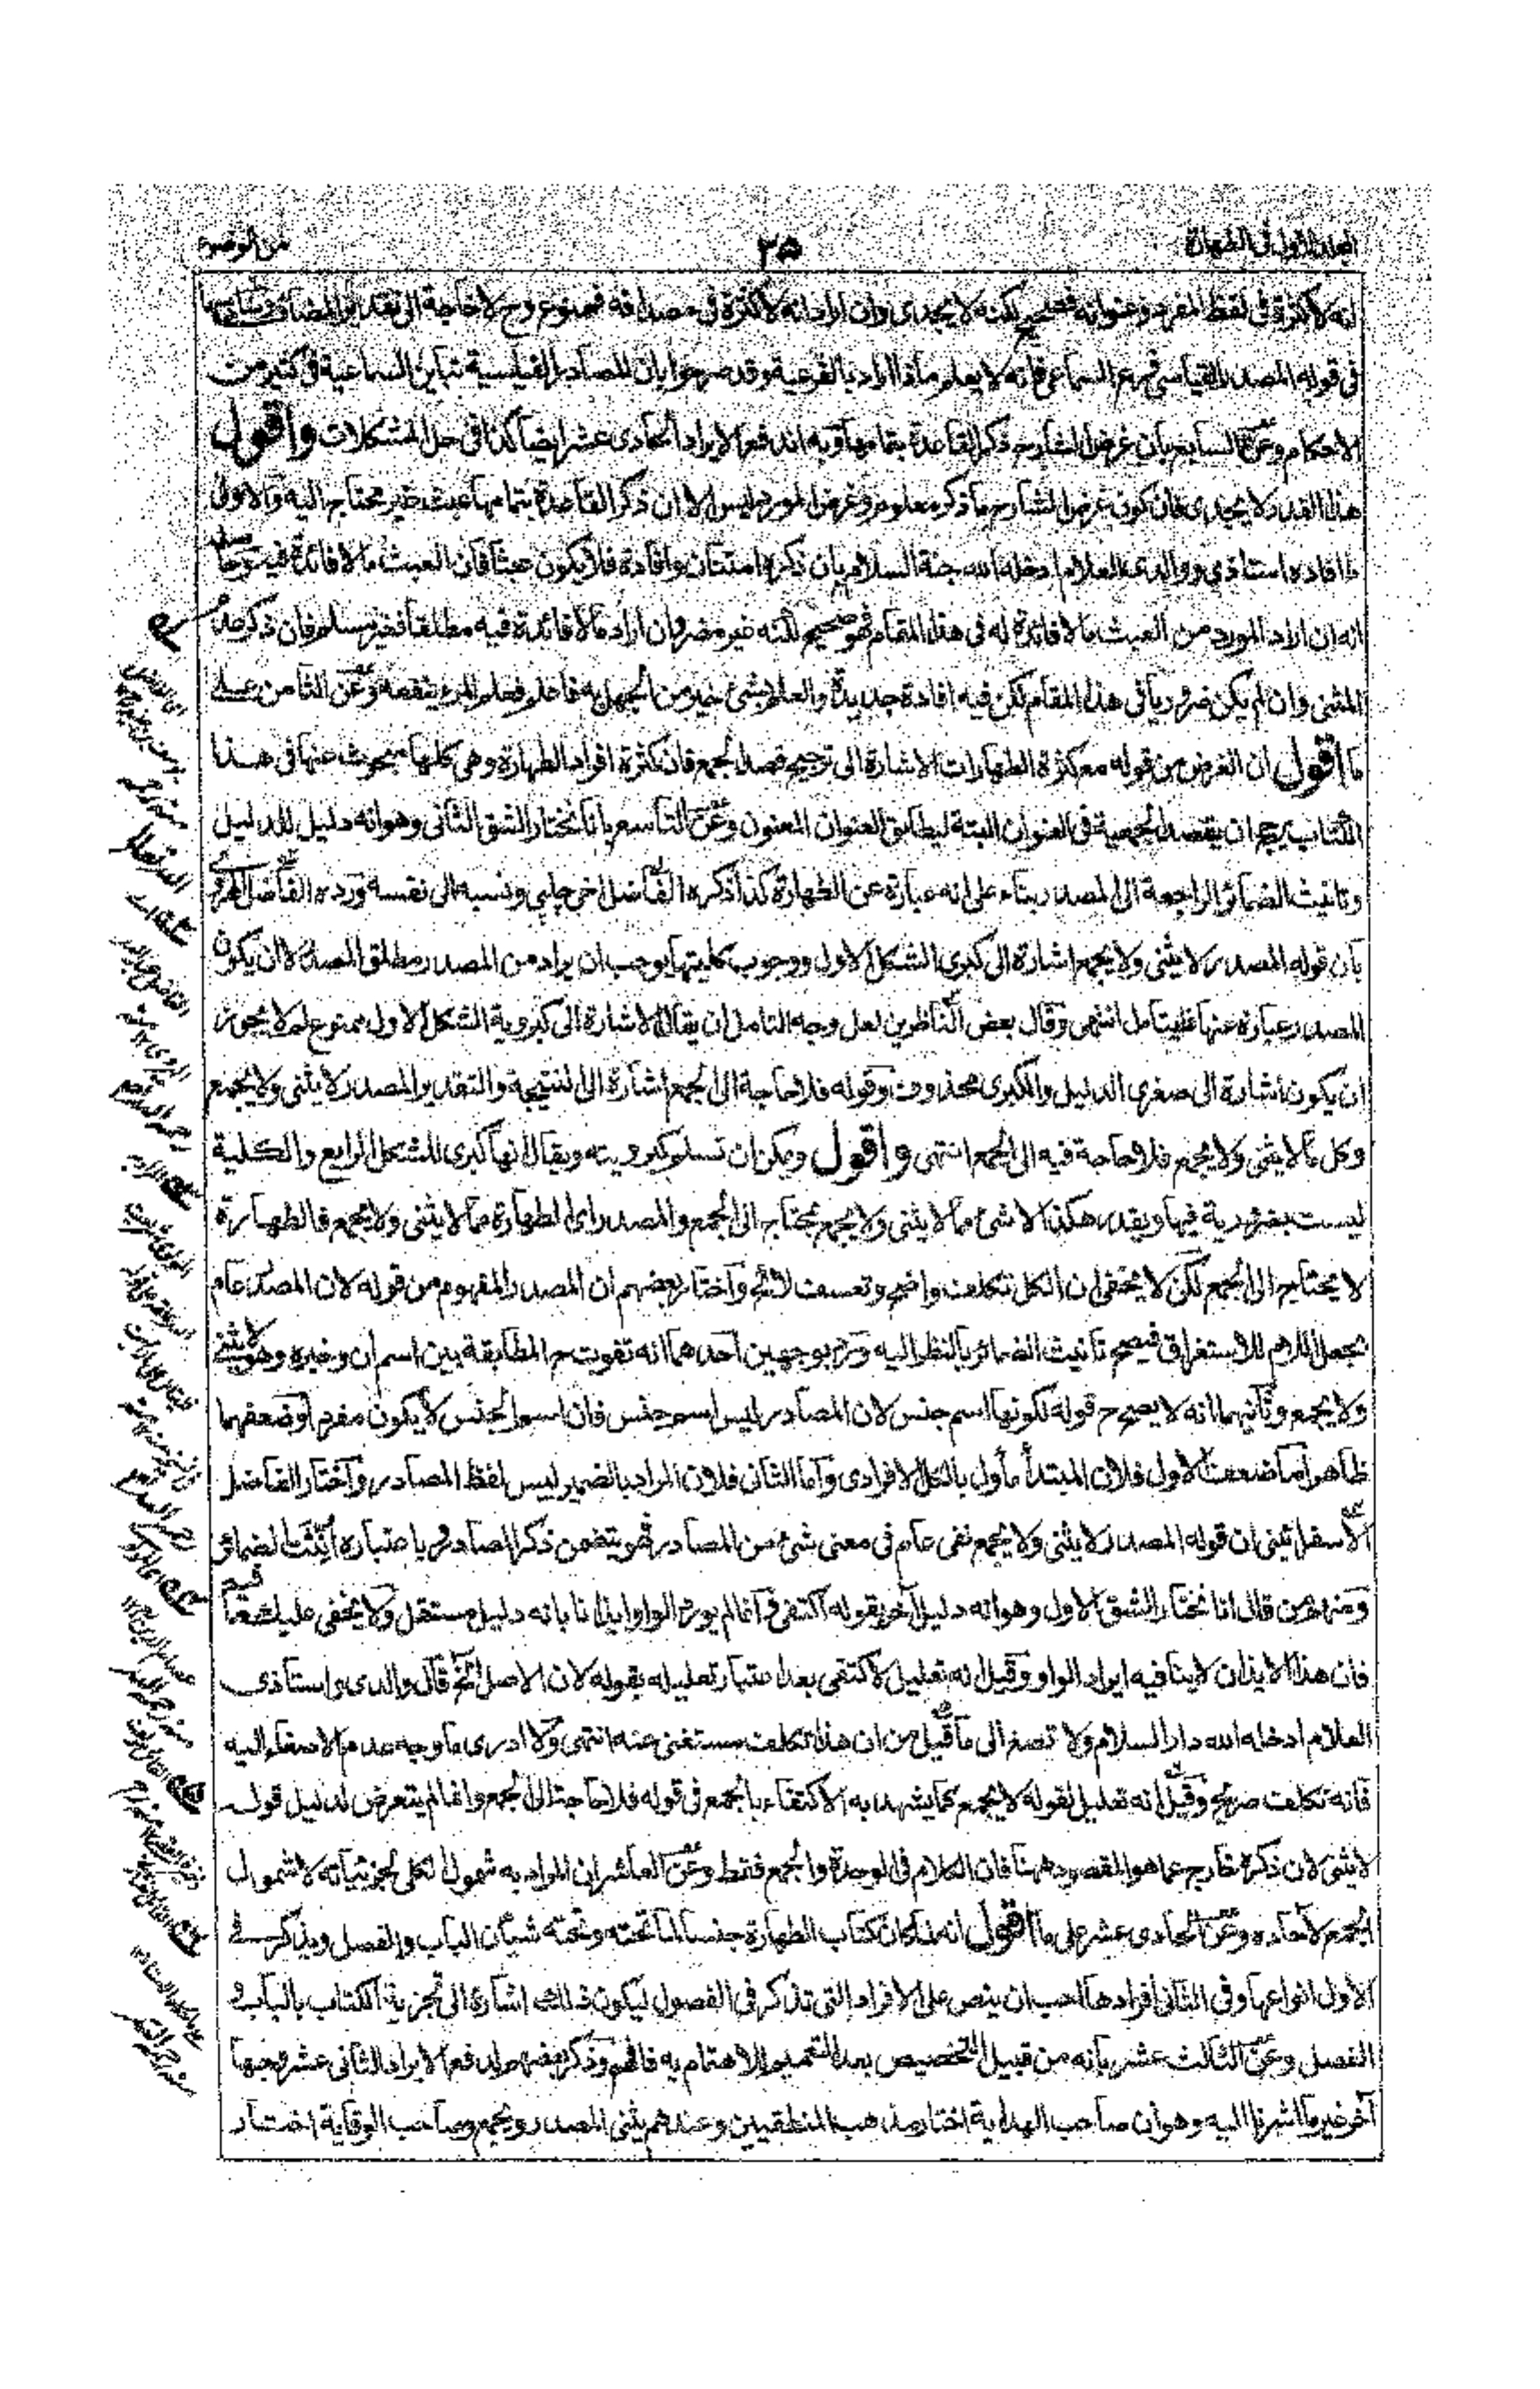 المجلد الاول فى الطهارة
٣٥
من الوضوء
انه لا كثرة فى لفظ المفرد وعنوانه فصحيح لكنه لا يجدى وان اراد انه لا كثرة فى مصداقه فممنوع وح لا حاجة الى تقدير المضاف
فى قوله المصدر القياسى فرع السماعى فانه لا يعلم ماذا اراد بالفرعية وقد صرحوا بان المصادر القياسية تباين السماعية فى كثير من
الاحكام وعن السابع بان غرض الشارح ذكر القاعدة بتمامها وبه اندفع الايراد الحادى عشر ايضا كذا فى حل المشكلات واقول
هذا القدر لا يجدى فان كون غرض الشارح ما ذكر معلوم وغرض المورد ليس الا ان ذكر القاعدة بتمامها عبث غير محتاج اليه والاولى
ما افاده استاذى ووالدى العلام ادخله الله جنة السلام بان ذكره امتنان وافادة فلا يكون عبثا فان العبث ما لا فائدة فيه وحاصله
انه ان اراد المورد من العبث ما لا فائدة له فى هذا المقام فهو صحيح لكنه غير مضر وان اراد ما لا فائدة فيه مطلقا فغير مسلم فان ذكر عدم
المثنى وان لم يكن ضروريا فى هذا المقام لكن فيه افادة جديدة والعلم بشئ خير من الجهل به فاعلم فعلم المرء ينفعه وعن الثامن على
ما اقول ان الغرض من قوله مع كثرة الطهارات الاشارة الى ترجيح قصد الجمع فان كثرة افراد الطهارة وهى كلها مبحوث عنها فى هذا
الكتاب يرجح ان يقصد الجمعية فى العنوان البتة ليطابق العنوان المعنون وعن التاسع بانا نختار الشق الثانى وهو انه دليل للدليل
وتانيث الضمائر الراجعة الى المصدر بناء على انه عبارة عن الطهارة كذا ذكره الفاضل اخى چلپى ونسبه الى نفسه ورده الفاضل الهروى
بان قوله المصدر لا يثنى ولا يجمع اشارة الى كبرى الشكل الاول ووجوب كليتها يوجب ان يراد من المصدر مطلق المصدر لا ان يكون
المصدر عبارة عنها فليتامل انتهى وقال بعض الناظرين لعل وجه التامل ان يقال الاشارة الى كبروية الشكل الاول ممنوع لم لا يجوز
ان يكون اشارة الى صغرى الدليل والكبرى محذوف وقوله فلا حاجة الى الجمع اشارة الى النتيجة والتقدير المصدر لا يثنى ولا يجمع
وكل ما لا يثنى ولا يجمع فلا حاجة فيه الى الجمع انتهى واقول ويمكن ان تسلم كبرويته ويقال انها كبرى للشكل الرابع والكلية
ليست بضرورية فيها ويقدر هكذا لا شئ مما لا يثنى ولا يجمع يحتاج الى الجمع والمصدر اى الطهارة مما لا يثنى ولا يجمع فالطهارة
لا يحتاج الى الجمع لكن لا يخفى ان الكل تكلف واضح وتعسف لائح واختار بعضهم ان المصدر المفهوم من قوله لان المصدر عام
بجعل اللام للاستغراق فيصح تانيث الضمائر بالنظر اليه ورد بوجهين احدهما انه تفوت ح المطابقة بين اسم ان وخبره وهو لا يثنى
ولا يجمع وثانيهما انه لا يصح ح قوله لكونها اسم جنس لان المصادر ليس اسم جنس فان اسم الجنس لا يكون مفردا وضعفهما
ظاهر اما ضعف الاول فلان المبتدأ مأول بالكل الافرادى واما الثانى فلان المراد بالضمير ليس لفظ المصادر واختار الفاضل
الاسفرائينى ان قوله المصدر لا يثنى ولا يجمع نفى عام فى معنى شئ من المصادر فهو يتضمن ذكر المصادر وباعتباره انّث الضمائر
ومنهم من قال انا نختار الشق الاول وهو انه دليل آخر لقوله اكتفى وانما لم يورد الواو ايذانا بانه دليل مستقل ولا يخفى عليك ضعفه
فان هذا الايذان لا ينافيه ايراد الواو وقيل انه تعليل لاكتفى بعد اعتبار تعليله بقوله لان الاصل الخ قال والدى واستاذى
العلام ادخله الله دار السلام ولا تصغ الى ما قيل من ان هذا تكلف مستغنى عنه انتهى ولا ادرى ما وجه عدم الاصغاء اليه
فانه تكلف صريح وقيل انه تعليل لقوله لا يجمع كما يشهد به الاكتفاء بالجمع فى قوله فلا حاجة الى الجمع وانما لم يتعرض لدليل قوله
لا يثنى لان ذكره خارج عما هو المقصود ههنا فان الكلام فى الوحدة والجمع فقط وعن العاشر ان المراد به شمول الكلى لجزئياته لا شمول
الجمع لآحاده وعن الحادى عشر على ما اقول انه لما كان كتاب الطهارة جنسا لما تحته وتحته شيئان الباب والفصل ويذكر فى
الاول انواعها وفى الثانى افرادها احب ان ينص على الافراد التى تذكر فى الفصول ليكون ذلك اشارة الى تجزية الكتاب بالباب و
الفصل وعن الثالث عشر بانه من قبيل التخصيص بعد التعميم للاهتمام به فافهم وذكر بعضهم لدفع الايراد الثانى عشر وجها
آخر غير ما اشرنا اليه وهو ان صاحب الهداية اختار مذهب المنطقيين وعندهم يثنى المصدر ويجمع وصاحب الوقاية اختار